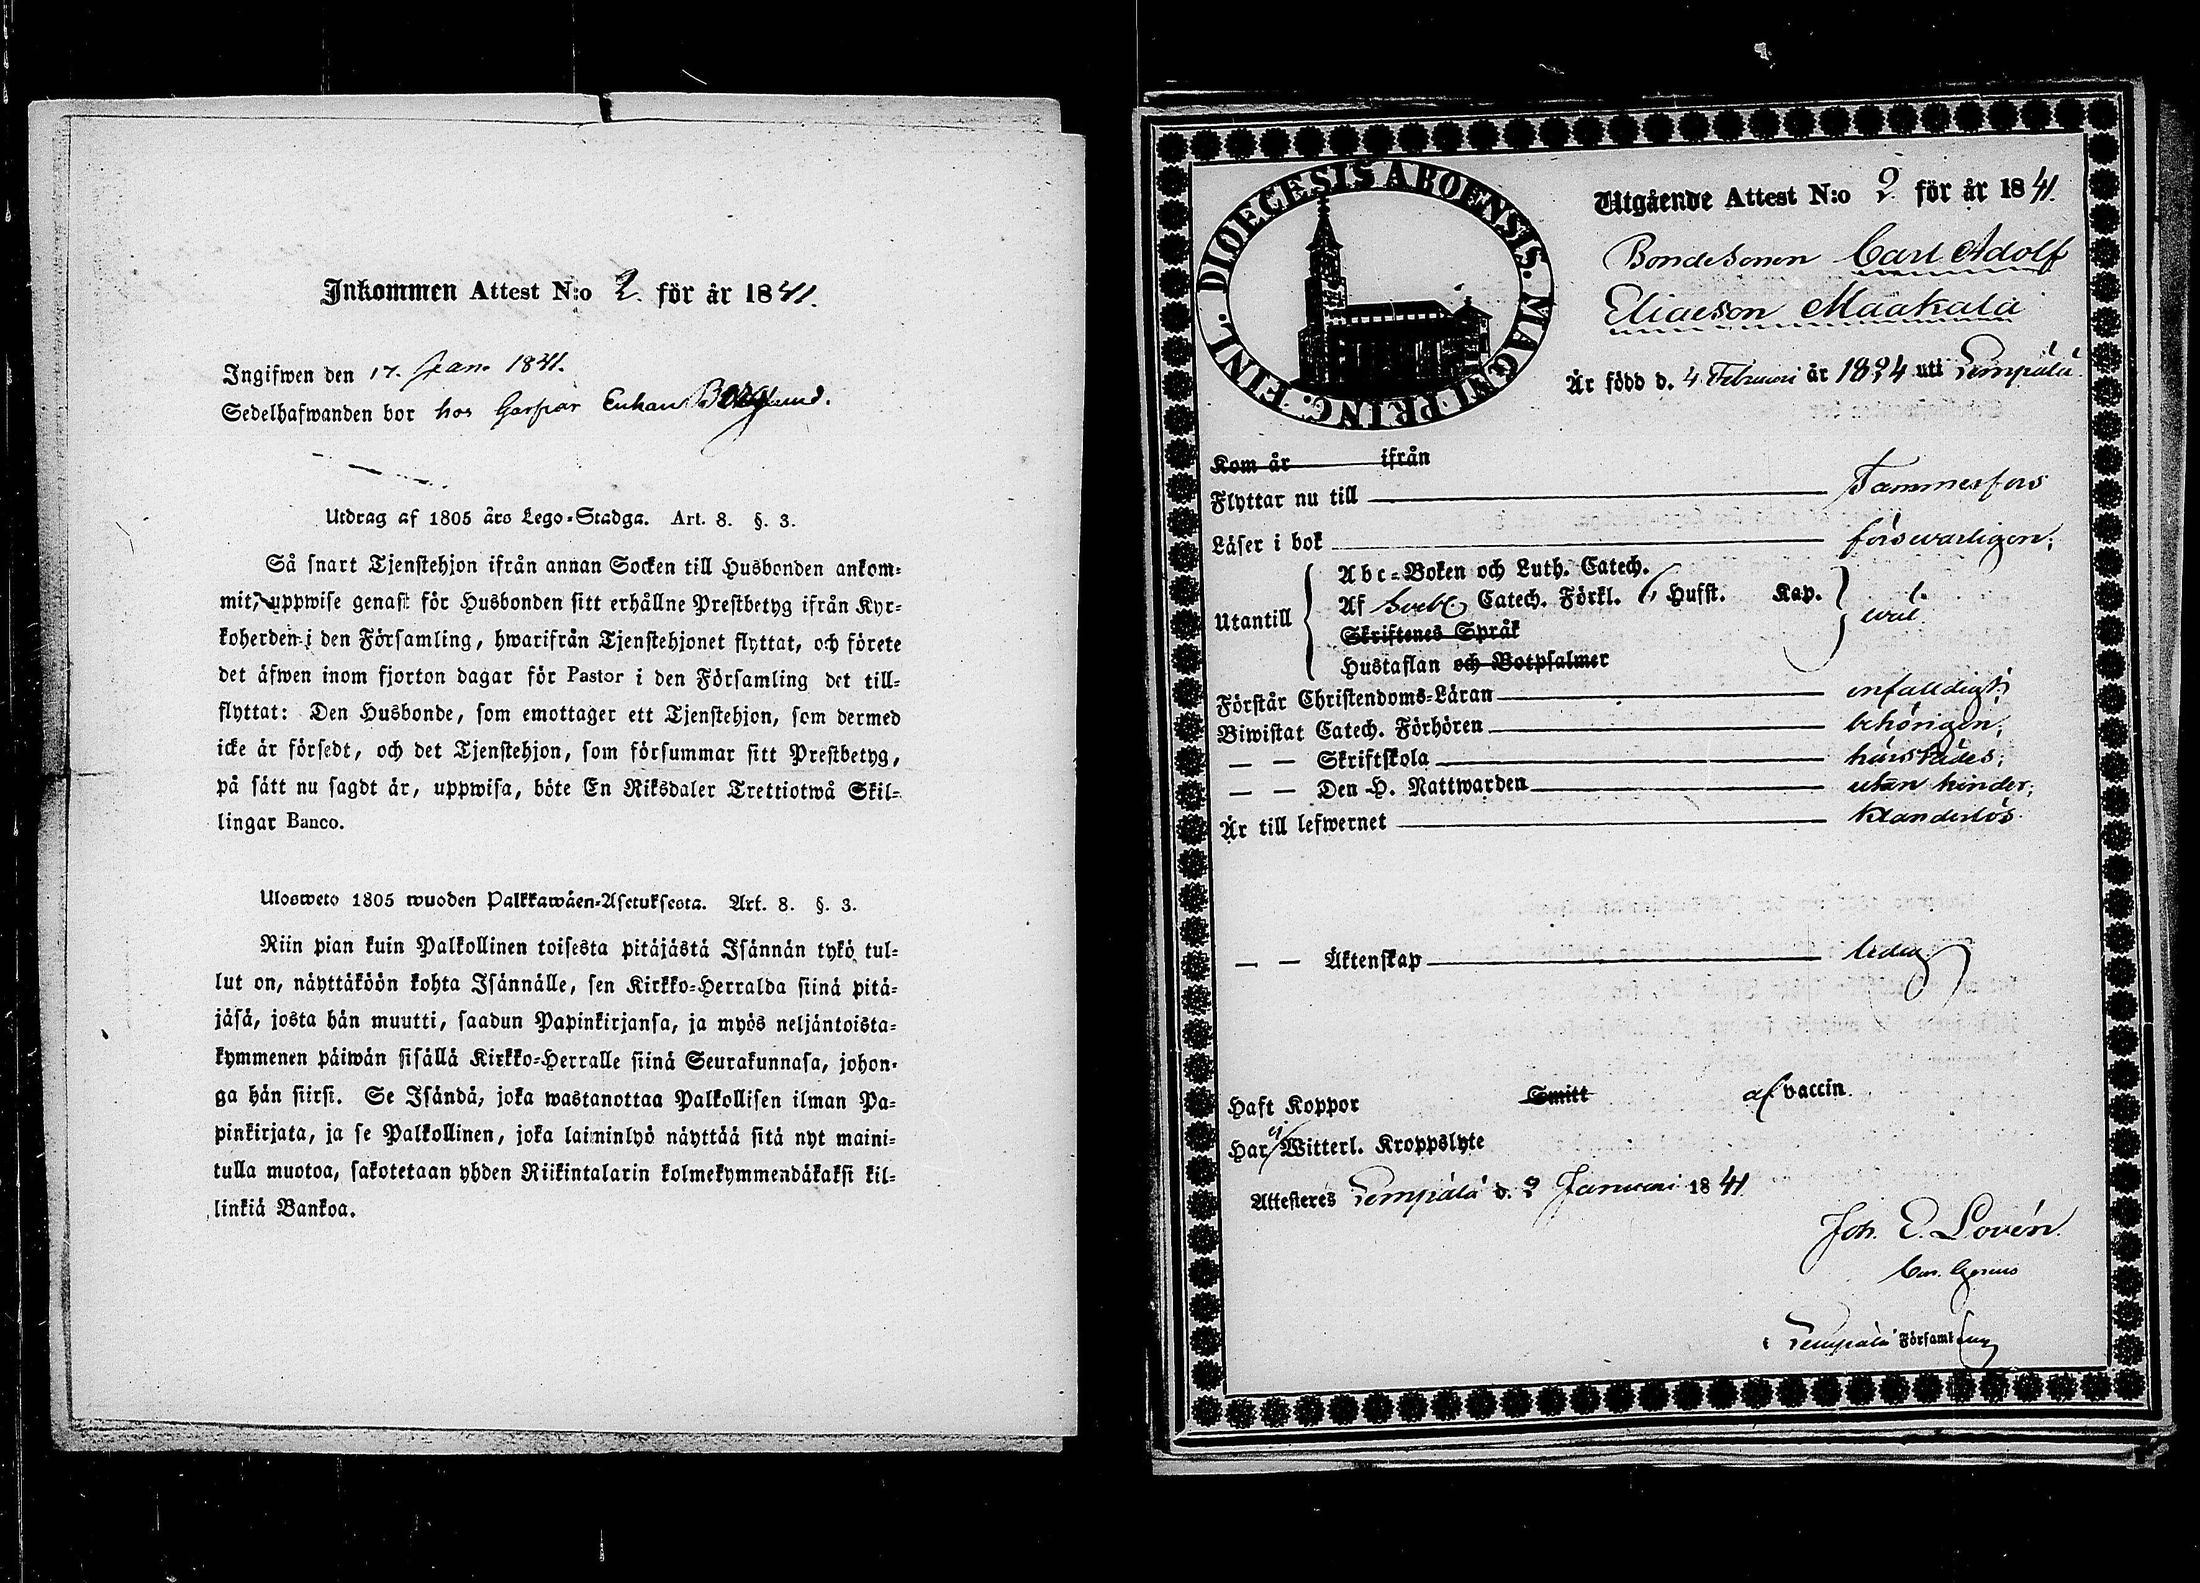 Inkommen Attest N:o 2. för år 1841.
Ingifwen den 17. Jan. 1841.
Sedelhafwanden bor hos Garfvar Enkan
Utdrag af 1805 års Lego-Stadga. Art. 8. §. 3.
Så snart Tjenstehjon ifrån annan Socken till Husbonden ankom-
mit, uppwise genast för Husbonden sitt erhållne Prestbetyg ifrån Kyr-
koherden i den Församling, hwarifrån Tjenstehjonet flyttat, och förete
det äfwen inom fjorton dagar för Pastor i den Församling det till-
flyttat: Den Husbonde, som emottager ett Tjenstehjon, som dermed
icke är försedt, och det Tjenstehjon, som försummar sitt Prestbetyg,
på sätt nu sagdt är, uppwisa, böte En Riksdaler Trettiotwå Skil-
lingar Banco.
Ulosweto 1805 wuoden Palkkawäen-Asetuksesta. Art. 8. §. 3.
Niin pian kuin Palkollinen toisesta pitäjästä Isännän tykö tul-
lut on, näyttäköön kohta Isännälle, sen Kirkko-Herralda siinä pitä-
jäsä, josta hän muutti, saadun Papinkirjansa, ja myös neljäntoista-
kymmenen päiwän sisällä Kirkko-Herralle siinä Seurakunnasa, johon-
ga hän siirsi. Se Isändä, joka wastanottaa Palkollisen ilman Pa-
pinkirjata, ja se Palkollinen, joka laiminlyö näyttää sitä nyt maini-
tulla muotoa, sakotetaan yhden Riikintalarin kolmekymmendäkaksi kil-
linkiä Bankoa.
DIOECESIS ABOENSIS. MAGNI PRINC. FINL.
Utgående Attest N:o 2 för år 1841.
Bondesonen Carl Adolf
Eliaeson Maakala
Är född d. 4 Februari år 1824 uti Lempälä.
Kom år ifrån
Flyttar nu till Tammerfors
Läser i bok försvarligen;
Abc-Boken och Luth. Catech.
Utantill Af Svebel. Catech. Förkl. Husst. Kap. väl.
Skriftenes Språk
Hustaflan och Botpsalmer
Förstår Christendoms-Läran enfalldigt;
Biwistat Catech. Förhören behörigen;
— — Skriftskola härstädes;
— — Den H. Nattwarden utan hinder;
Är till lefwernet klanderlös.
— — Äktenskap ledig.
Haft Koppor Smitt af vaccin.
Har ej Witterl. Kroppslyte
Attesteres Lempälä d. 2 Januari 1841
Joh. E. Lovén.
i Lempälä Församl